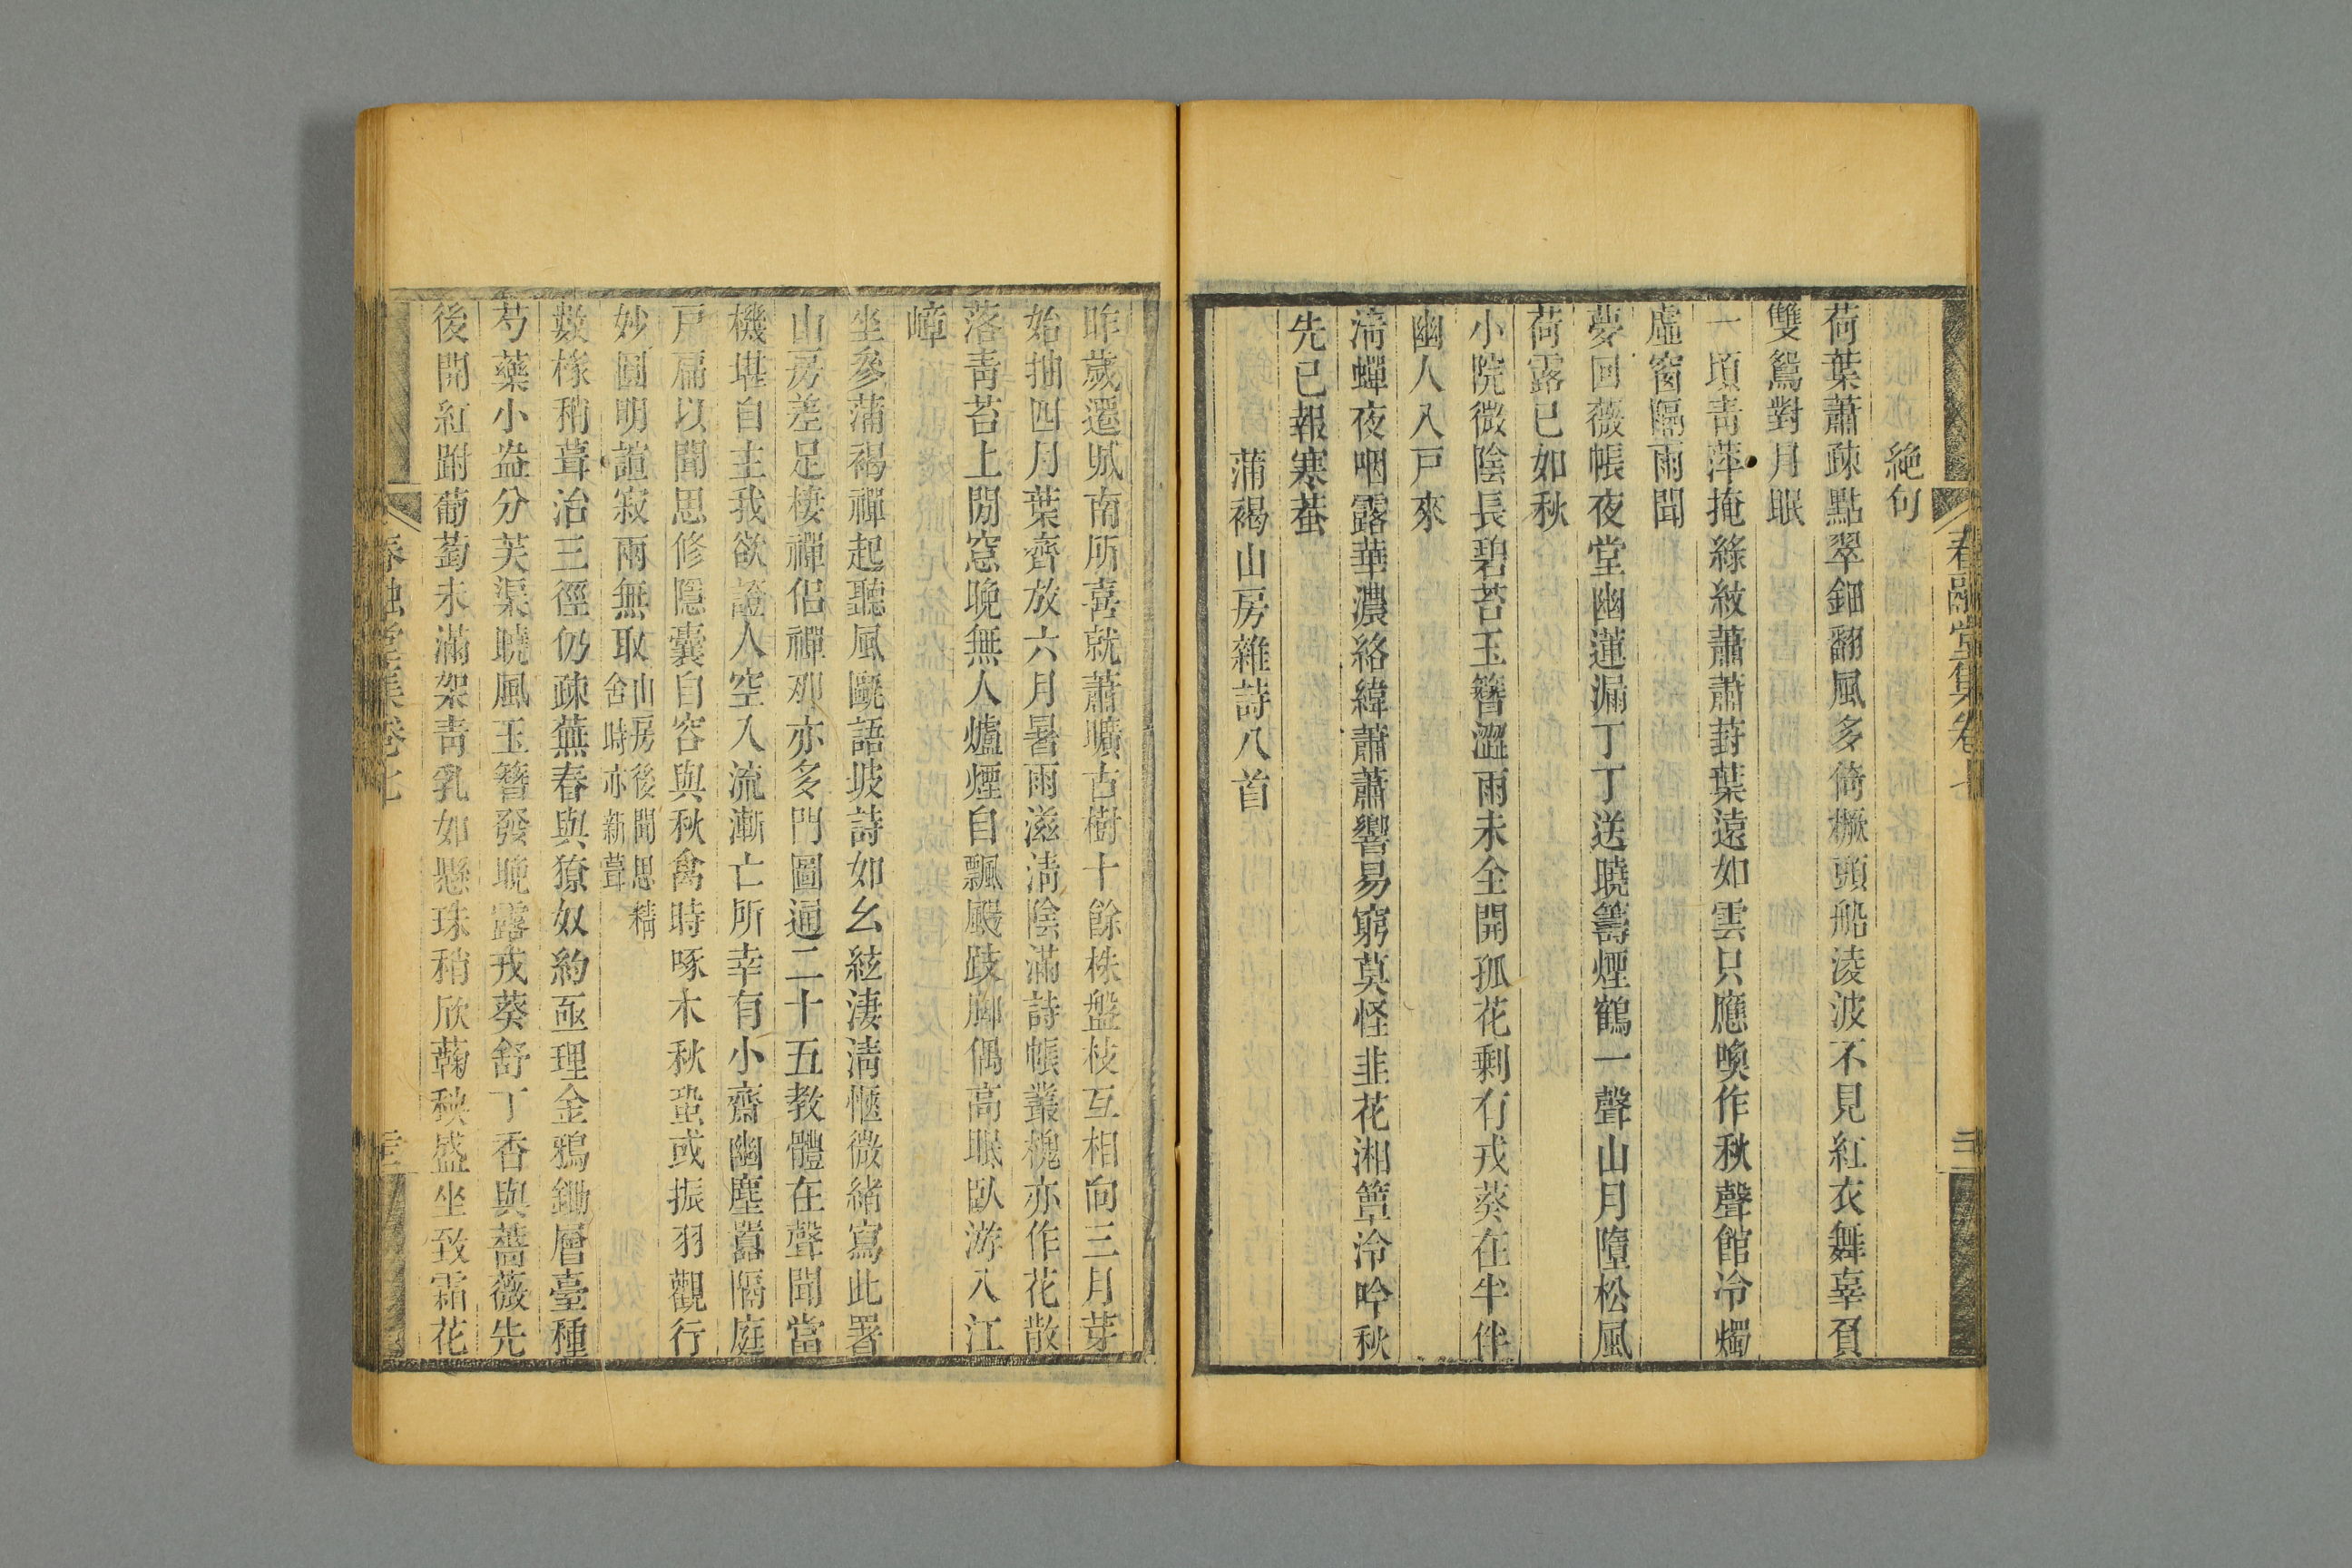 春融堂集卷七
絶句
荷葉蕭疎點翠鈿翻風多倚橛頭船淩波不見紅衣舞辜負
雙鴛對月眠
一頃青萍掩綠紋蕭蕭葑葉遠如雲只應喚作秋聲館冷燭
虛窗隔雨聞
夢回薇帳夜堂幽蓮漏丁丁送曉籌煙鶴一聲山月墮松風
荷露已如秋
小院微陰長碧苔玉簪澀雨未全開孤花剩有戎葵在半伴
幽人入戸來
漪蟬夜咽露華濃絡緯蕭蕭響易窮莫怪韭花湘簟冷吟秋
先已報寒蛬
蒲褐山房雜詩八首
昨歲還城南所喜就蕭曠古樹十餘株盤枝互相向三月芽
始抽四月葉齊放六月暑雨滋淸陰滿詩帳叢槐亦作花散
落青苔上閒窓晚無人爐煙自飄颺跂腳偶高眠臥游入江
嶂
坐參蒲褐禪起聽風甌語坡詩如幺絃淒淸愜微緒寫此署
山房差足棲禪侶禪那亦多門圖通二十五教體在聲聞當
機堪自主我欲證人空入流漸亡所幸有小齋幽塵囂隔庭
戸扁以聞思修隱囊自容與秋禽時啄木秋蛩或振羽觀行
妙圓明諠寂兩無取山房後聞思精舍時亦新葺
數椽稍葺治三徑仍疎蕪春與獠奴約亟理金鴉鋤層臺種
芍藥小盎分芙渠曉風玉簪發晚露戎葵舒丁香與薔薇先
後開紅跗葡萄未滿架青乳如懸珠稍欣蘜秧盛坐致霜花
春融堂集卷七